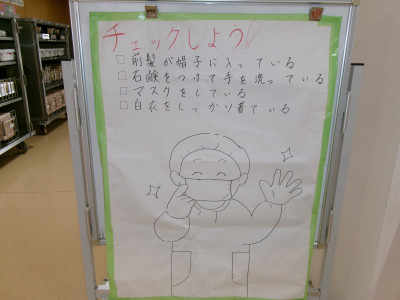 チェックしよう!
□前髪が帽子に入っている
□石鹸をつけて手を洗っている
□マスクをしている
□白衣をしっかり着ている